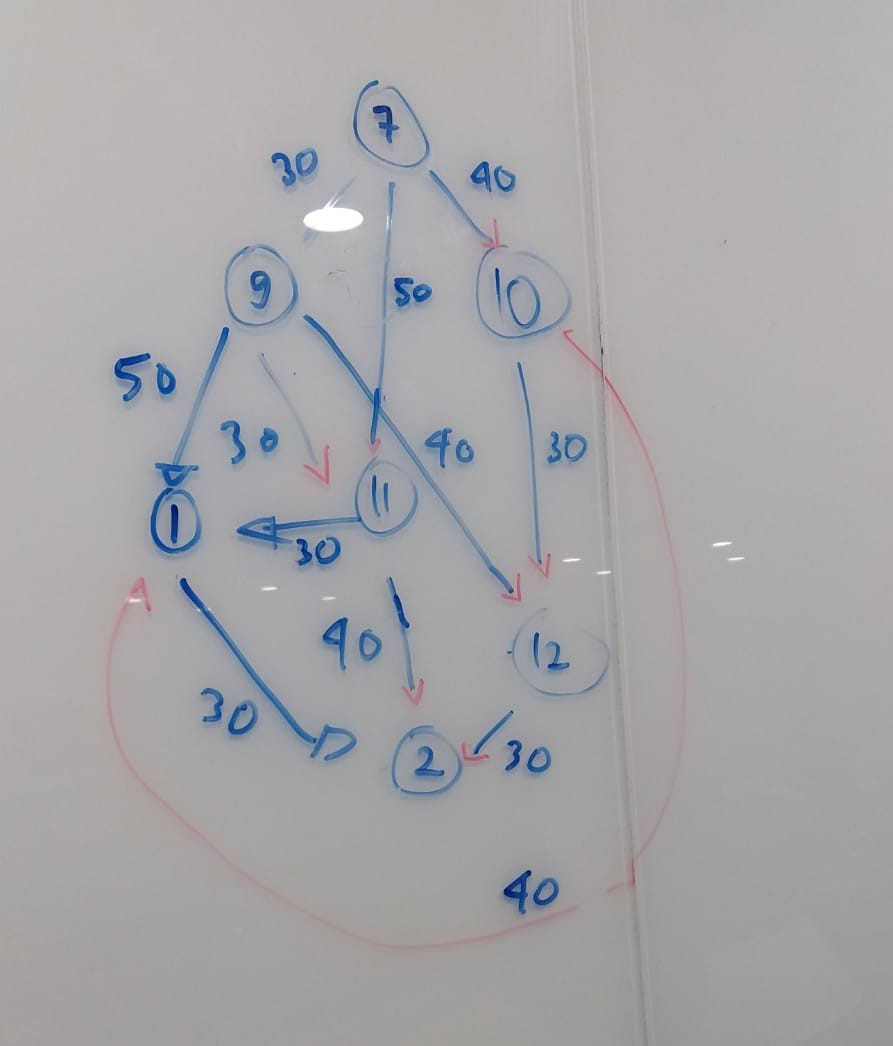 7
30
40
9
50
10
50
30
40
30
1
11
30
40
12
30
2
30
40